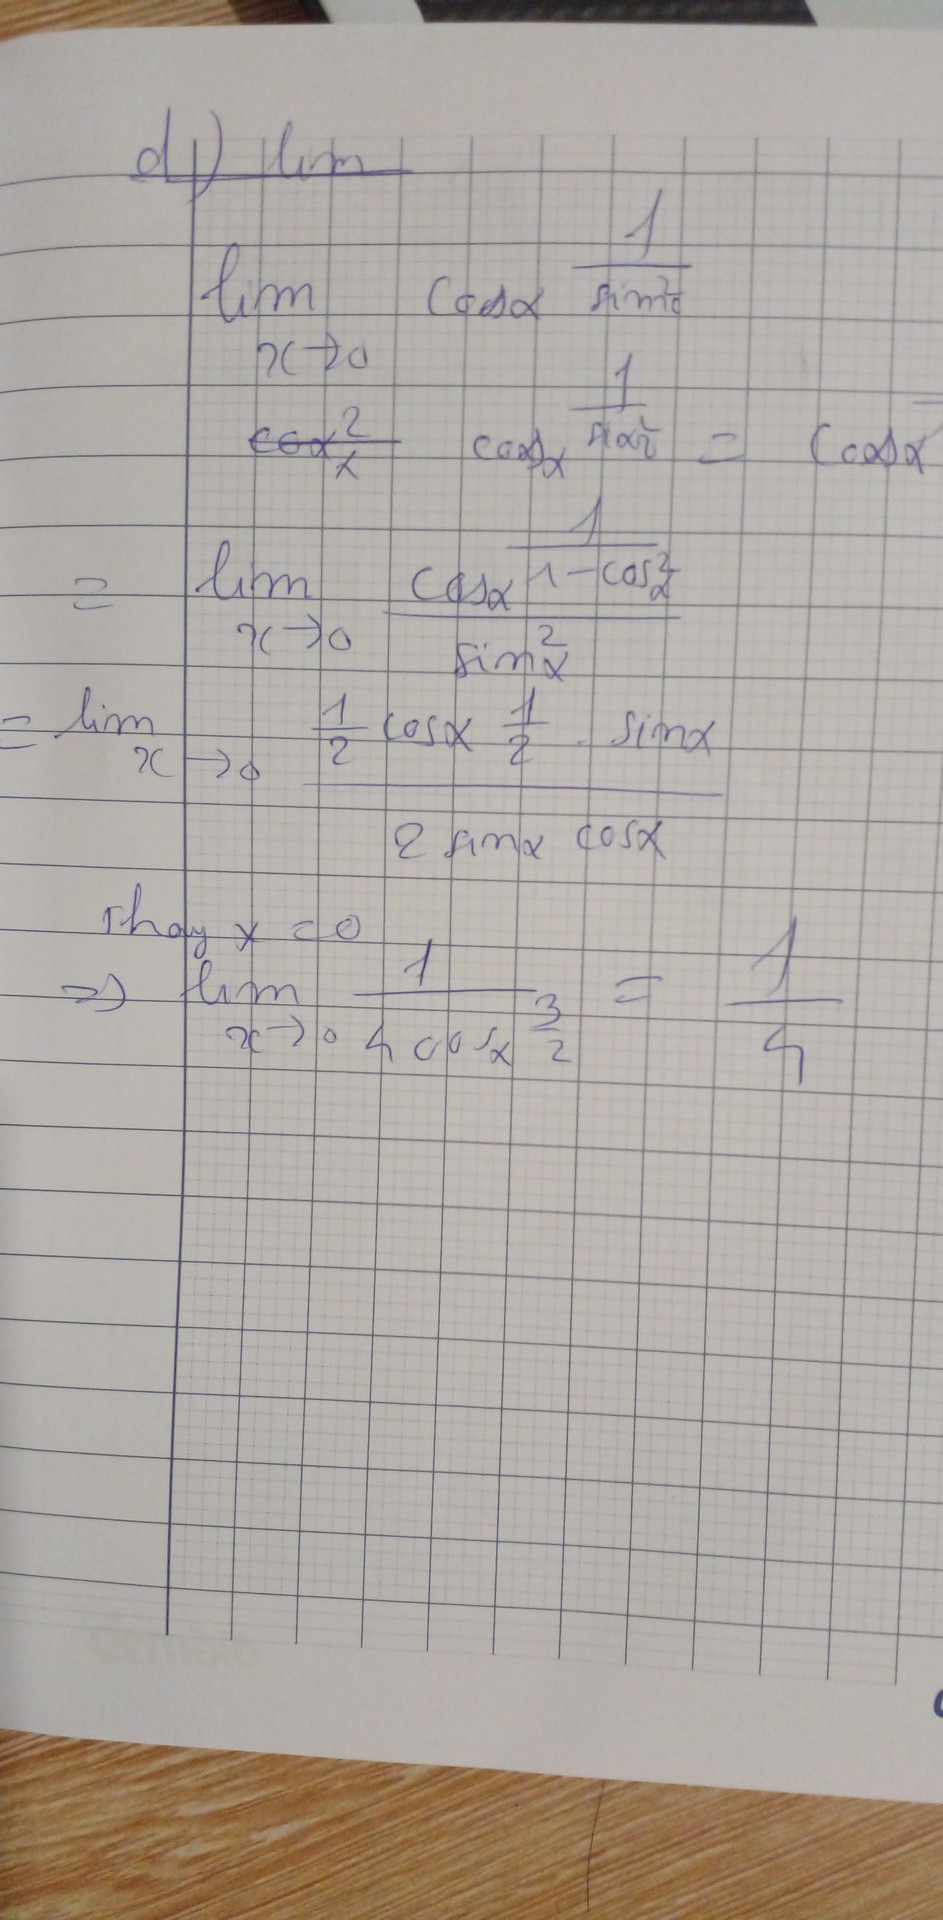 d) lim
lim x→0 cosx^(1/sin²x)
cosx²/x cosx^(1/sinx²) = cosx
= lim x→0 cosx^(1/(1-cos²x)) / sin²x
= lim x→0 (1/2 cosx 1/2 . sinx) / (2 sinx cosx)
Thay x = 0
=> lim x→0 1/(4 cosx^(3/2)) = 1/4